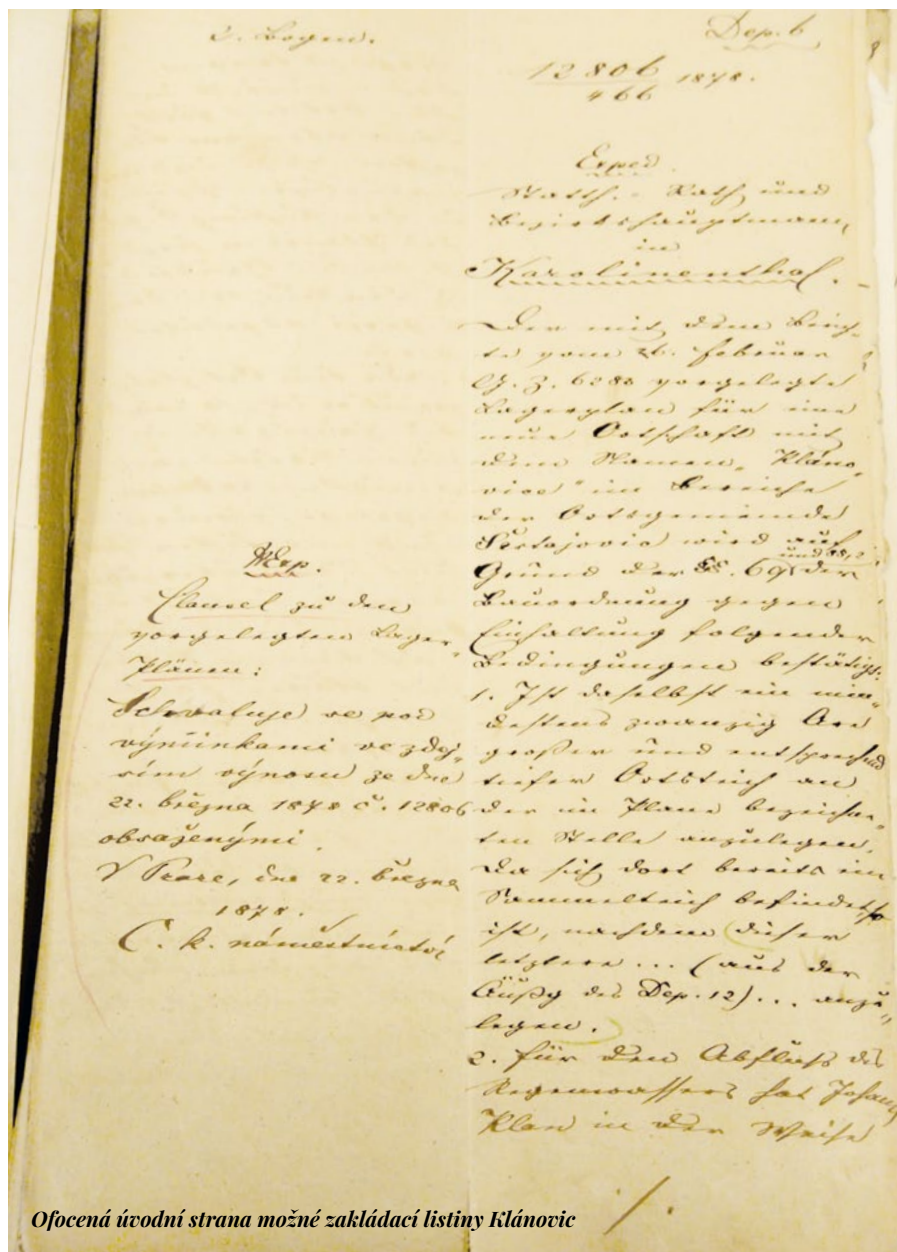 2. Bogen.
Dep. 6
12806 / 466 1878.
Exped
Statth.- Rath und
Bezirkshauptmann
in
Karolinenthal.
Der mit dem Berich-
te vom 26. Februar
G. Z. 6288 vorgelegte
Lagerplan für eine
neue Ortschaft mit
dem Namen „Kláno-
vice“ im Bereiche
der Ortsgemeinde
wird auf
Grund der §§. 69 und 88,2 der
Bauordnung gegen
Einhaltung folgender
Bedingungen bestätigt:
1. Ist daselbst ein min-
destens zwanzig Are
großer und entsprechend
tiefer Ortsteich an
der im Plane bezeichne-
ten Stelle anzulegen.
Da sich dort bereits ein
Sammelteich befindet, so
ist, nachdem dieser
letztere ... (aus der
des Dep. 12) ... anzu-
legen.
2. Für den Abfluß des
Regenwassers hat Johann
Klan in der Weise
Exp.
Clausel zu den
vorgelegten Lager-
Plänen:
Schvaluje se pod
výminkami ve zdej-
ším výnosu ze dne
22. března 1878 č. 12806
obsaženými.
V Praze, dne 22. března
1878.
C. k. náměstnictví
Ofocená úvodní strana možné zakládací listiny Klánovic